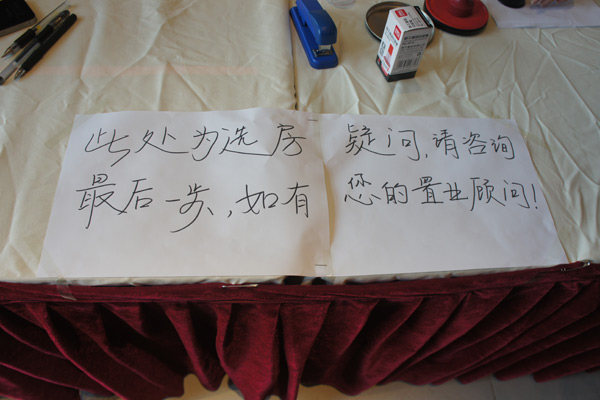 此处为选房疑问,请咨询
最后一步,如有您的置业顾问!